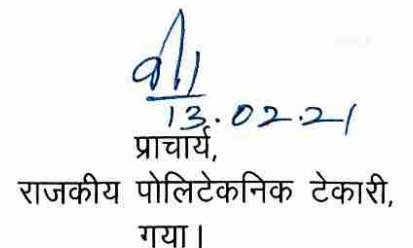 13.02.21
प्राचार्य,
राजकीय पोलिटेकनिक टेकारी,
गया।